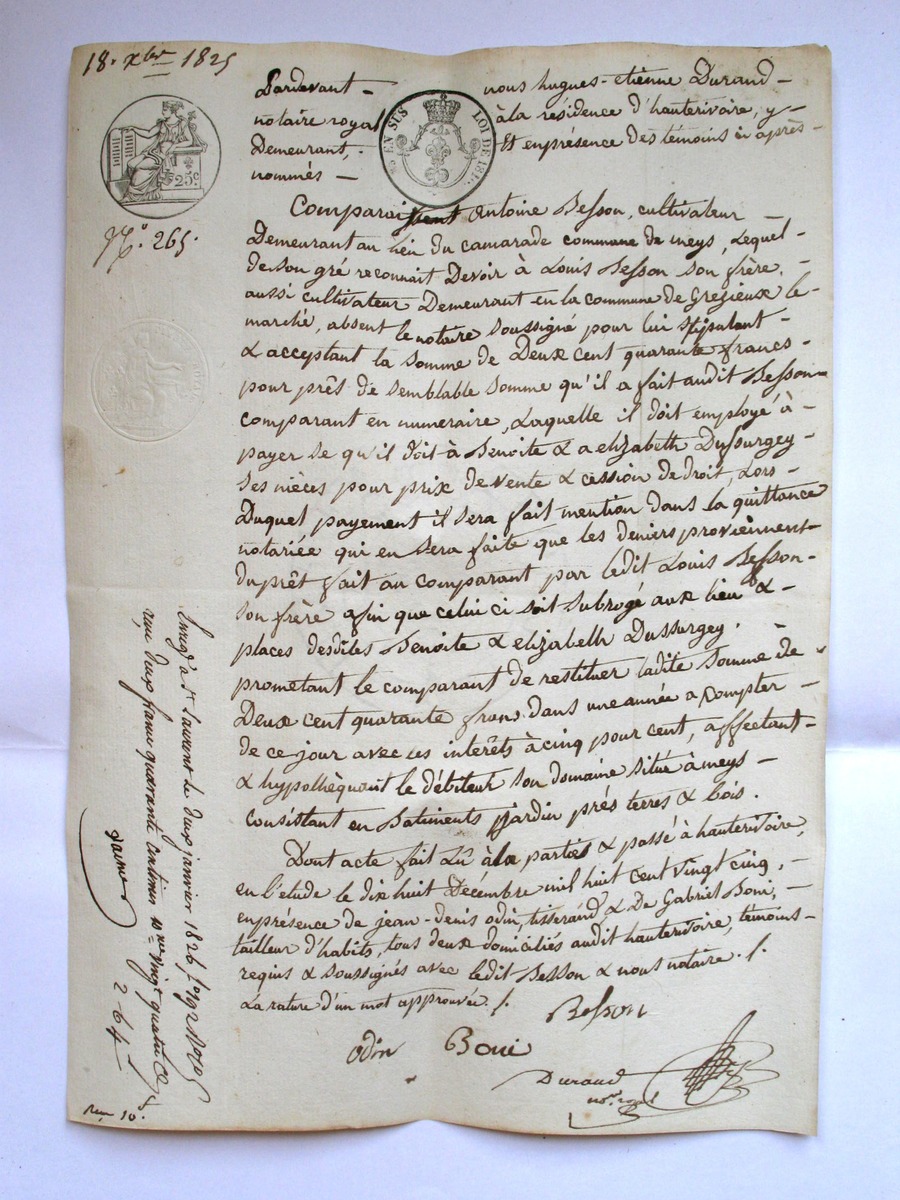 18. xbre 1825
Pardevant — nous hugues-etienne Durand —
notaire royal à la résidence d'hauterivoire, y —
Demeurant, . Et en présence Des témoins ci après —
nommés —
EN SUS LOI DE
25c
N.° 265.
Comparaissent Antoine Besson, cultivateur —
Demeurant au lieu du camarade commune de meys, Lequel —
de son gré reconnait Devoir à Louis Besson son frère,
aussi cultivateur Demeurant en la commune de Grezieux le —
marché, absent le notaire soussigné pour lui stipulant —
& acceptant la somme de Deux cent quarante francs —
pour prêt de semblable somme qu'il a fait audit Besson —
comparant en numeraire, Laquelle il doit employé à —
payer ce qu'il doit à Benoite & a elizabeth Dussurgey —
ses nièces pour prix de vente & cession de droit, Lors —
Duquel payement il sera fait mention dans la quittance
notariée qui en sera faite que les deniers proviennent
du prêt fait au comparant par ledit Louis Besson —
son frère afin que celui ci soit subrogé aux lieu & —
places desdites Benoite & elizabeth Dussurgey. —
prometant le comparant de restituer ladite somme de
Deux cent quarante francs dans une année a compter —
de ce jour avec les intérêts à cinq pour cent, affectant —
& hypothèquant le débiteur son domaine situé à meys —
consistant en Batiments jardin prés terres & bois.
Dont acte fait Lû à la parties & passé à hauterivoire,
en l'etude le dix huit Décembre mil huit cent vingt cinq, —
en présence de jean-denis odin, tisserand & De Gabriel Boni, —
tailleur d'habits, tous deux domiciliés audit hauterivoire, témoins —
requis & soussignés avec ledit Besson & nous notaire. /.
La rature d'un mot approuvée. /.
Besson
odin Boni
Durand
nore royal
Enregé à St Laurent le deux janvier 1826 fo 192
reçu deux francs quarante centimes vingt quatre
2-64
10c.